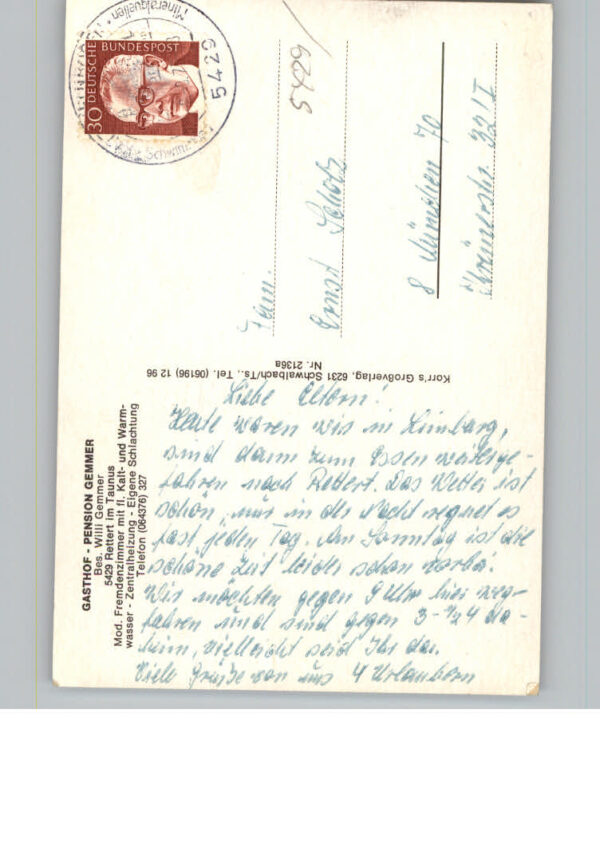 GASTHOF - PENSION GEMMER
Bes. Willi Gemmer
5429 Rettert im Taunus
Mod. Fremdenzimmer mit fl. Kalt- und Warm-
wasser - Zentralheizung - Eigene Schlachtung
Telefon (064376) 327
Liebe Eltern!
Heute waren wir in Limburg,
sind dann zum Essen weiterge-
fahren nach Rettert. Das Wetter ist
schön, nur in der Nacht regnet es
fast jeden Tag. Am Sonntag ist die
schöne Zeit leider schon vorbei.
Wir möchten gegen 9 Uhr hier weg-
fahren und sind gegen 3-1/2 4 da-
heim, vielleicht seid Ihr da.
Viele Grüße von uns 4 Urlaubern
Korr's Großverlag, 6231 Schwalbach/Ts., Tel. (06196) 12 96
Nr. 2136a
DEUTSCHE BUNDESPOST
30
Mineralquellen
5429
5429/
Fam.
Ernst Scholz
8 München 70
32/I